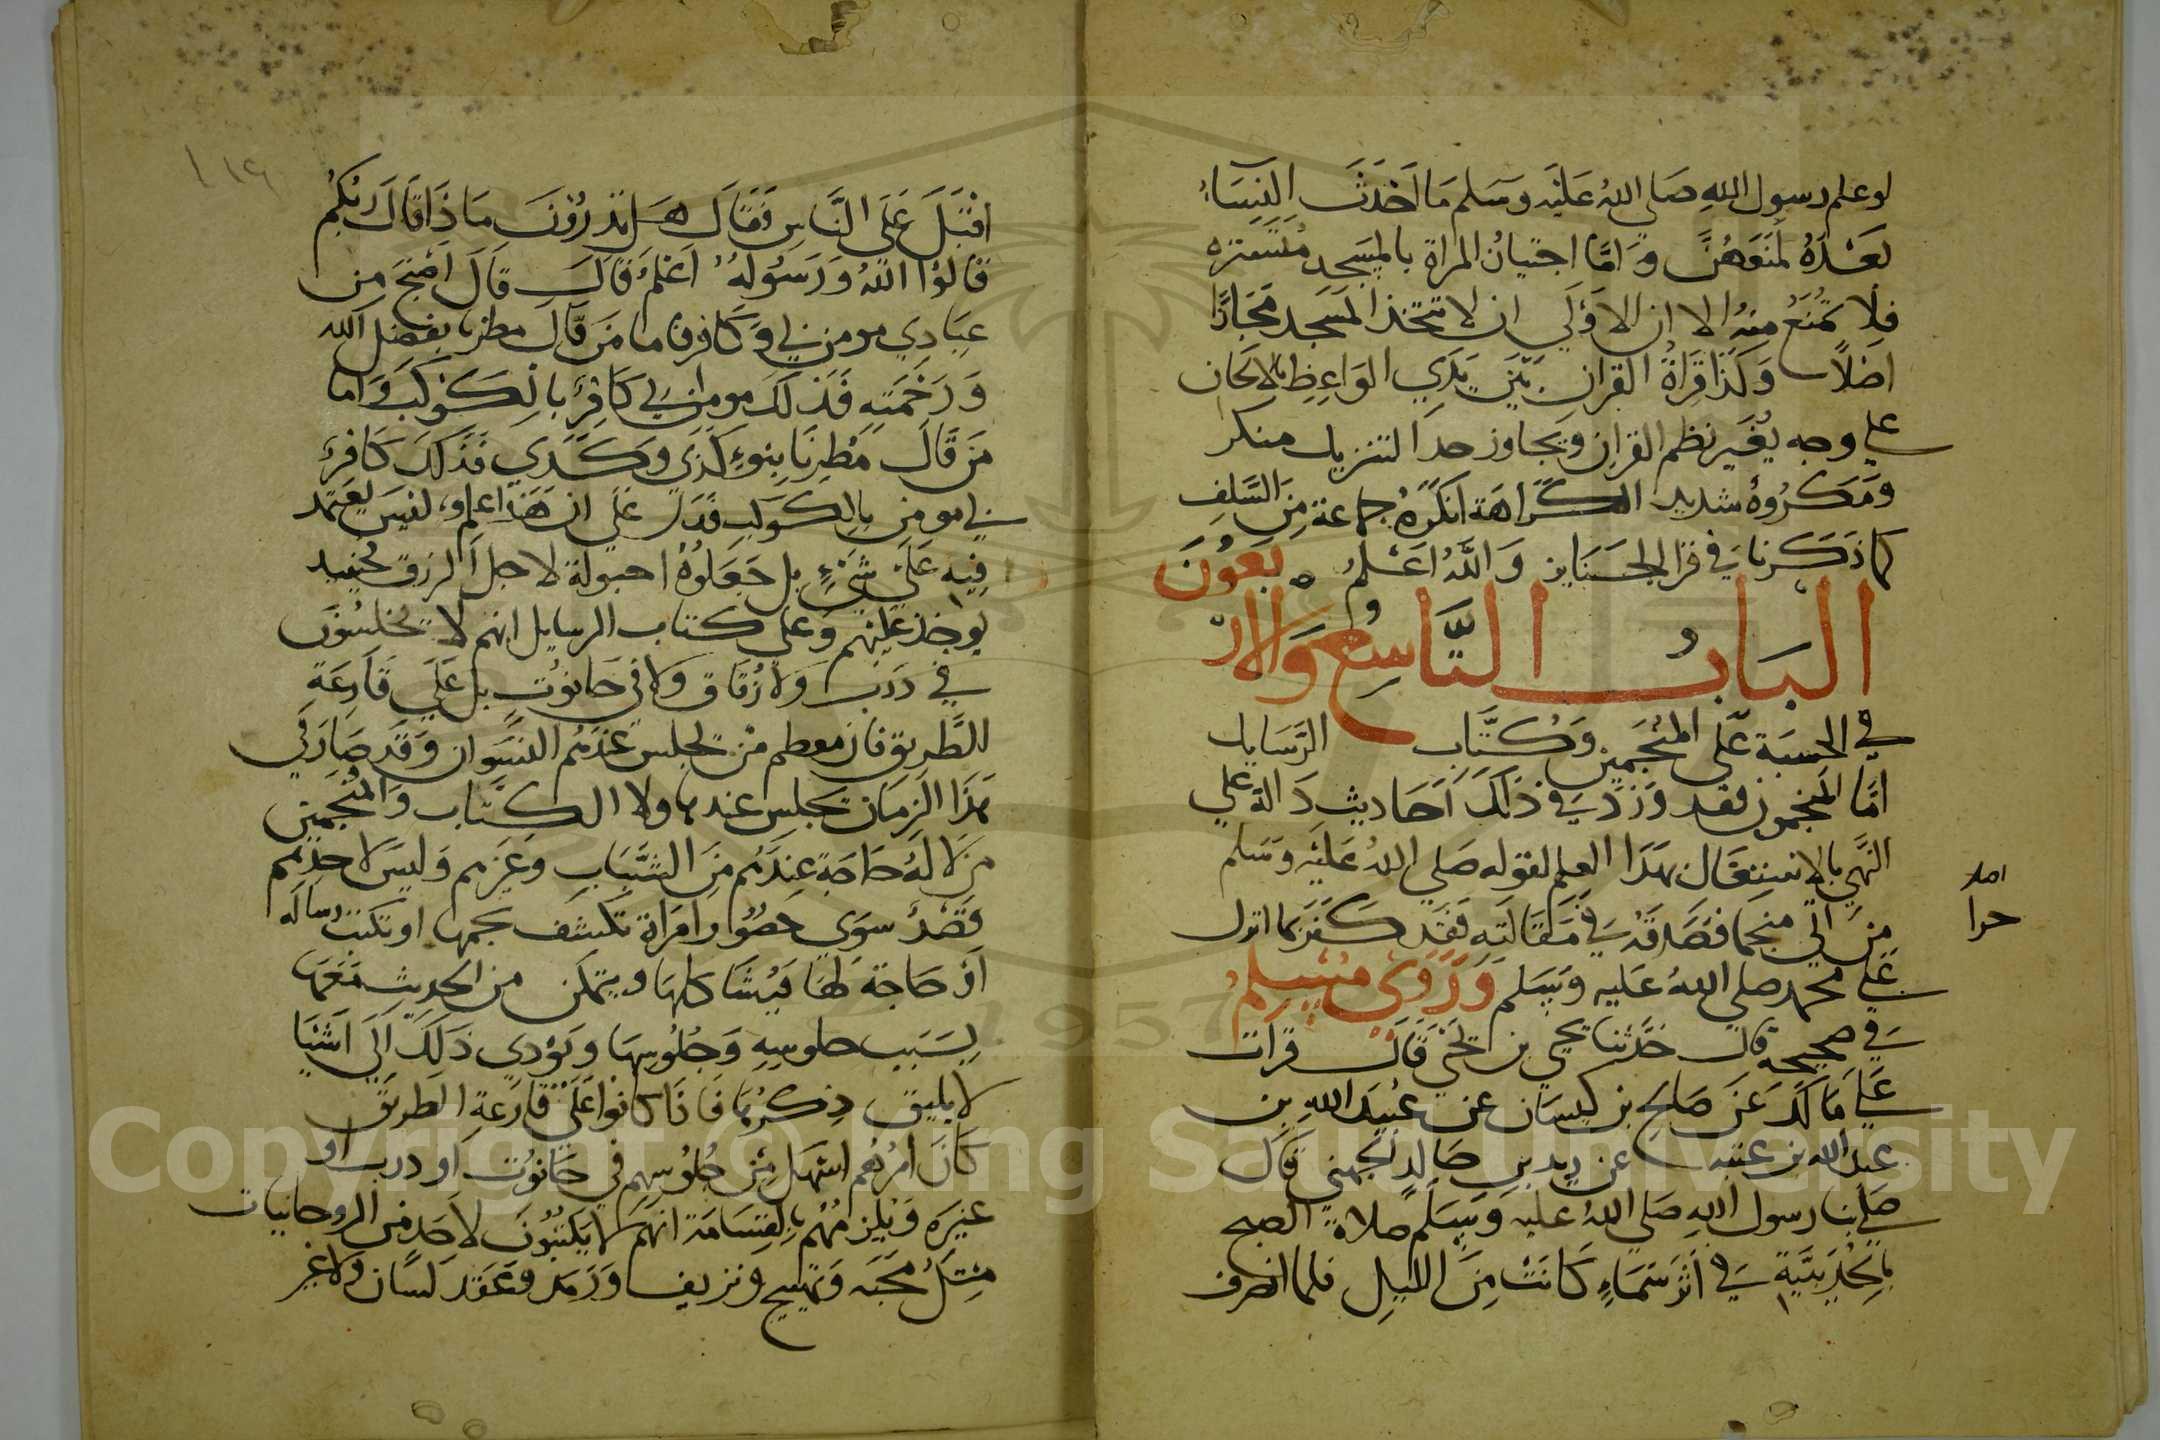 لو علم رسول الله صلي الله عليه وسلم ما احدث النساء
بعده لمنعهن واما اجتيان المراة بالمسجد مستتره
فلا تمنع منه الا ان الاولي ان لا تتخذ المسجد مجازا
اصلا وكذا قراة القران بين يدي الواعظ بالالحان
علي وجه يغير نظم القران ويجاوز حد التنزيل منكر
ومكروه شديد الكراهة انكره جماعة من السلف
كما ذكرنا في قرا الجنايز والله اعلم
الباب التاسع والاربعون
في الحسبة علي المنجمين وكتاب الرسايل
اما المنجمون فقد ورد في ذلك احاديث دالة علي
النهي بالانتفال بهذا العلم لقوله صلي الله عليه وسلم
من اتي منجما فصدقه في مقالته فقد كفر بما انزل
علي محمد صلي الله عليه وسلم وروي مسلم
في صحيحه قال حدثنا يحيي بن يحيي قال قرات
علي مالك عن صالح بن كيسان عن عبيد الله بن
عبد الله بن عتبه عن زيد بن خالد الجهني قال
صلي بنا رسول الله صلي الله عليه وسلم صلاة الصبح
بالحديبية في اثر سماء كانت من الليل فلما انصرف
١١٦
اقبل علي الناس فقال هل تدرون ماذا قال ربكم
قالوا الله ورسوله اعلم قال قال اصبح من
عبادي مومن بي وكافر فاما من قال مطرنا بفضل الله
ورحمته فذلك مومن بي كافر بالكوكب واما
من قال مطرنا بنوء كذي وكذي فذلك كافر
بي مومن بالكوكب فدل علي ان هذا علم ليس يعتمد
فيه علي شيء بل جعلوه احبولة لاجل الرزق فحينيد
يوخذ عليهم وعلي كتاب الرسايل انهم لا يجلسون
في درب ولا زقاق ولا في حانوت بل علي قارعة
الطريق فان معظم من يجلس عندهم النسوان وقد صار في
هذا الزمان يجلس عند هاولا الكتاب والمنجمين
من لا له حاجة عندهم من الشباب وغيرهم وليس لاحدهم
قصد سوي حضور امراة تكشف نجمها او تكتب رساله
او حاجة لها فيشاكلها ويتمكن من الحديث معها
بسبب جلوسه وجلوسها ويودي ذلك الي اشيا
لا يليق ذكرها فاذا كانوا علي قارعة الطريق
كان امرهم اسهل من جلوسهم في حانوت او درب او
غيره ويلزمهم بالقسامة انهم لا يكتبون لاحد من الروحانيات
مثل محبه وتهييج ونزيف ورمد وعقد لسان ولا غير
Copyright © King Saud University
1957